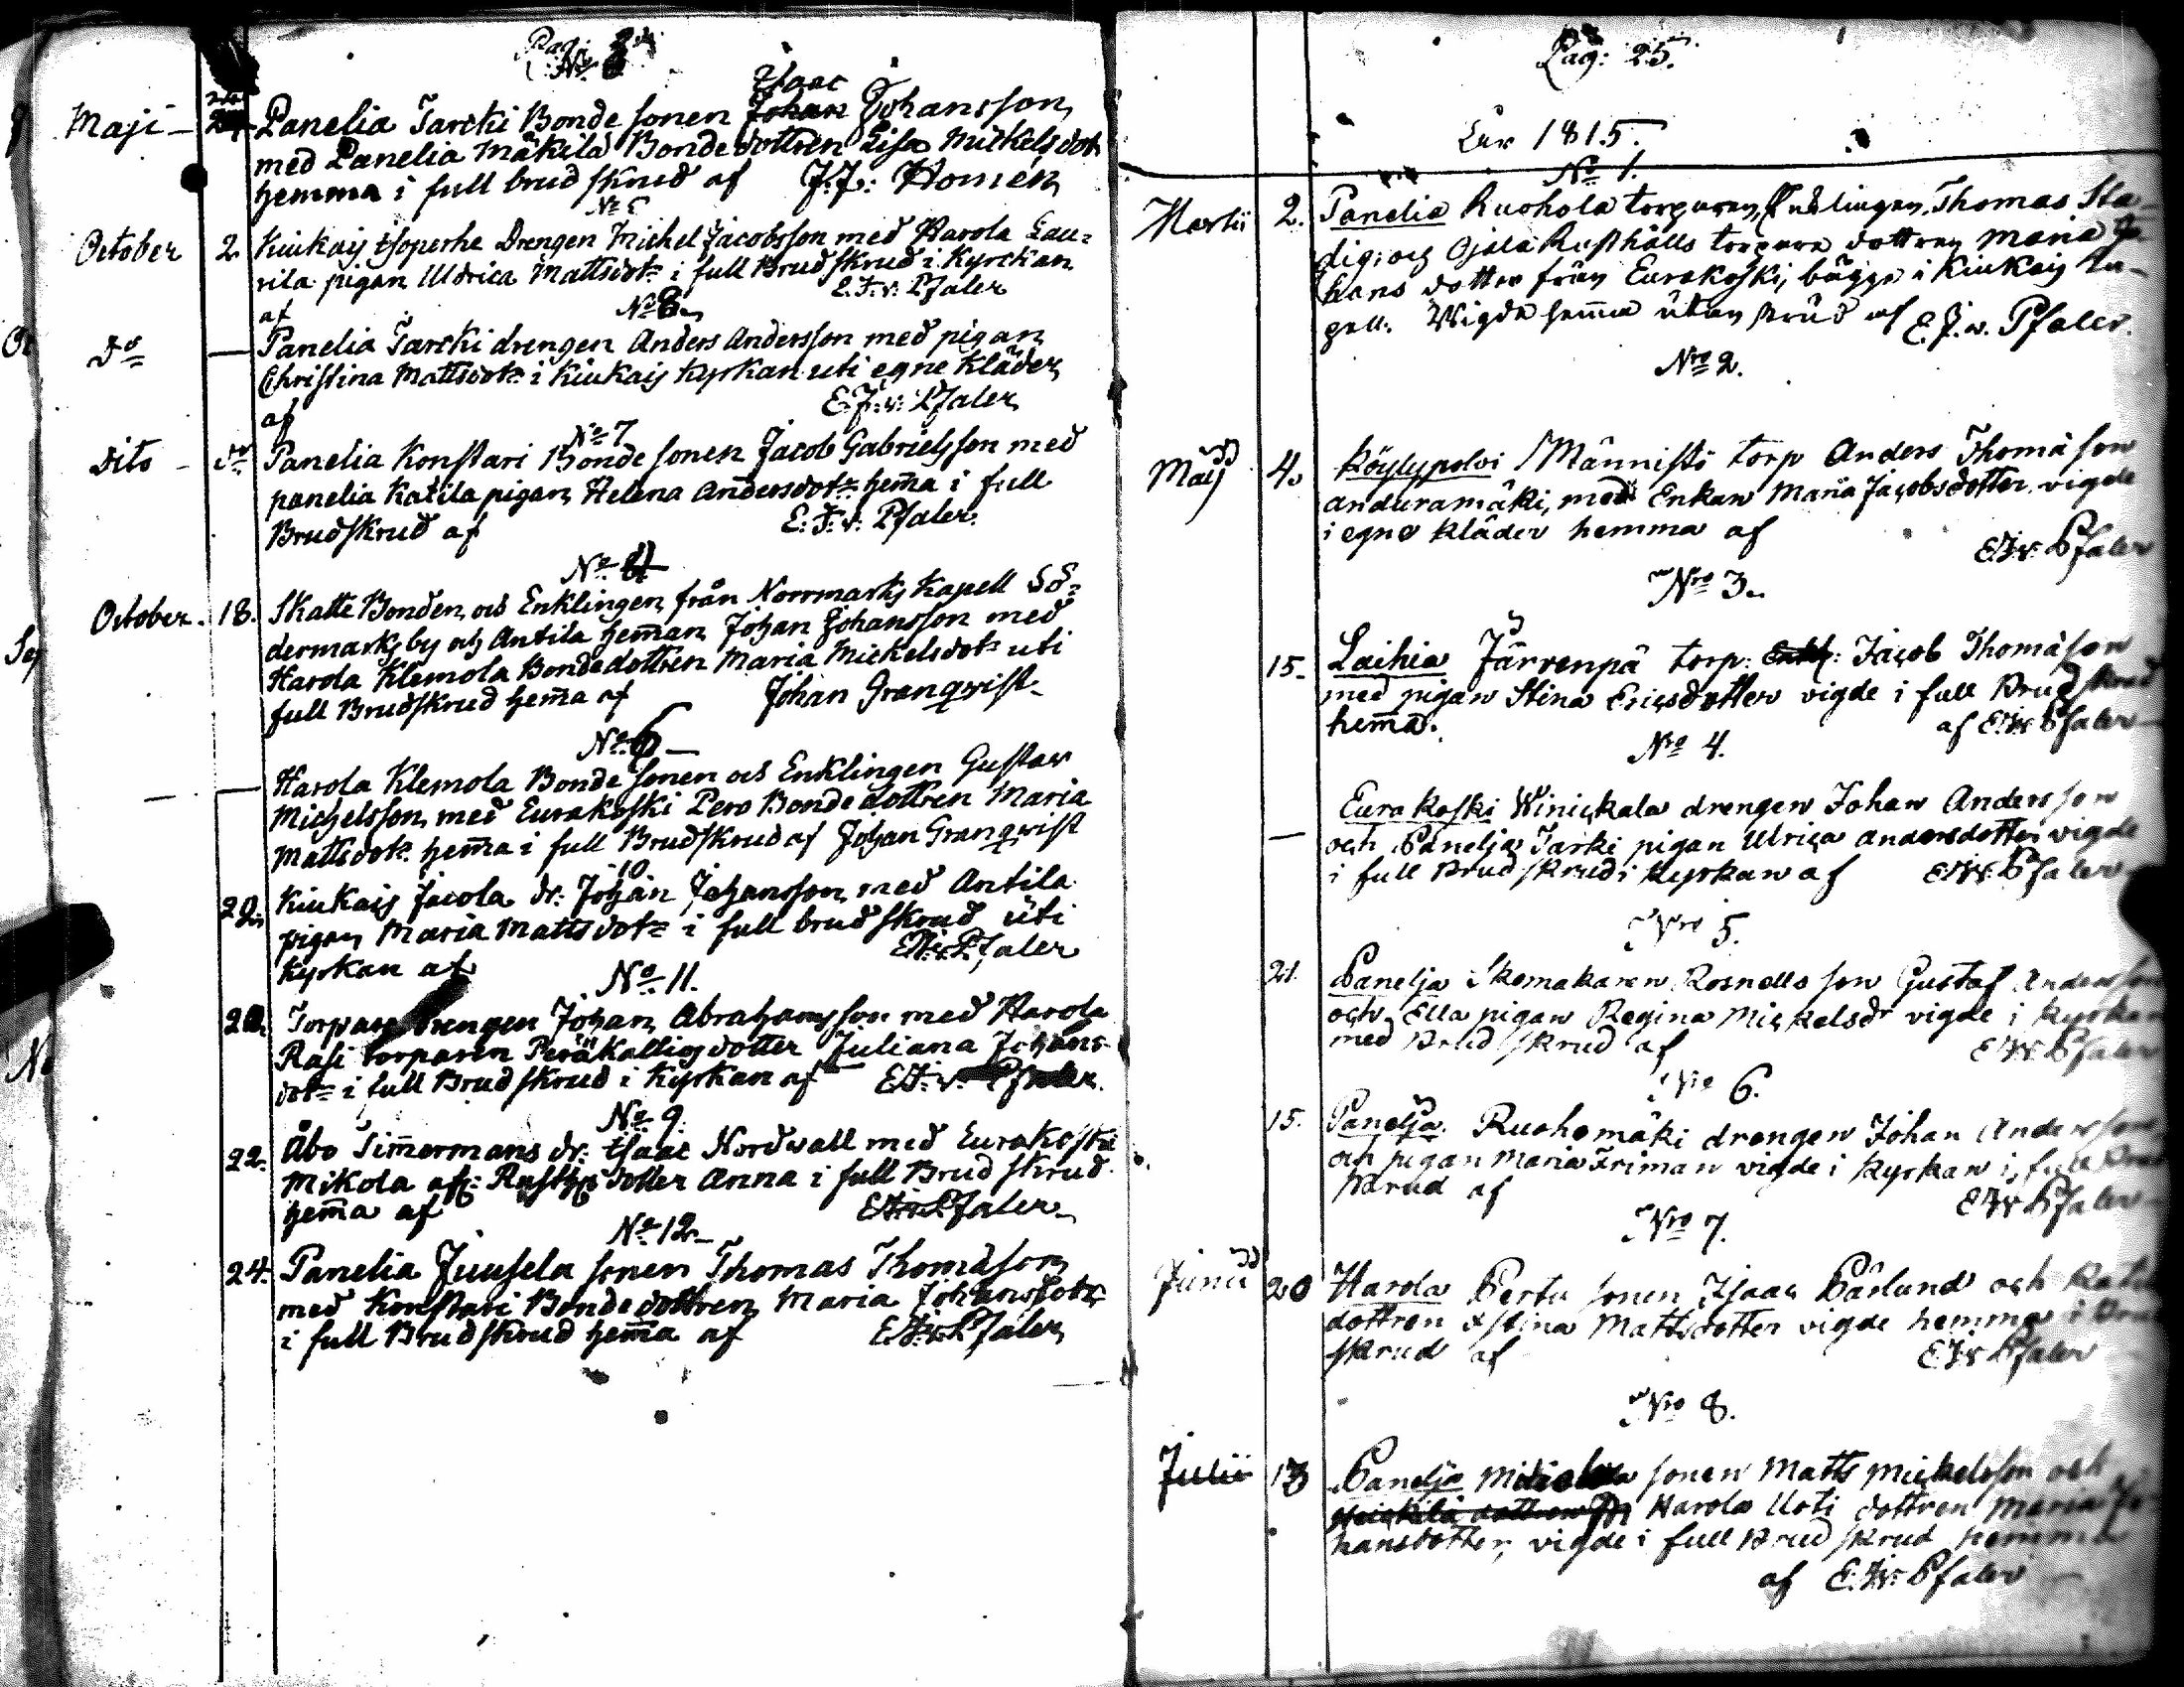 Pag: 24.
No
Isaac
Maji 24 Panelia Tarcki Bonde sonen Johan Johansson
med Panelia Mäkilä Bonde dottren Lisa Mickelsdotr
hemma i full brud skrud af J: J: Homén
No 5
October 2 Kiukais Isoperhe Drengen Michel Jacobsson med Harola Lau-
rila pigan Uldrica Mattsdotr i full Brudskrud i Kyrckan
af E. J: v: Pfaler
No 8
Do — Panelia Tarcki drengen Anders Andersson med pigan
Christina Mattsdotr i Kiukais Kyrkan uti egne Kläder
af E. J: v: Pfaler
No 7
Dito do Panelia Konstari Bonde sonen Jacob Gabrielsson med
panelia Katila pigan Helena Andersdotr hema i full
Brudskrud af E: J: v: Pfaler
No 4
October. 18. Skatte Bonden och Enklingen från Norrmarks Kapell Sö-
dermarks by och Antila heman Johan Johansson med
Harola Klemola Bondedottren Maria Mickelsdotr uti
full Brudskrud hema af Johan Granqwist
No 6
— — Harola Klemola Bonde sonen och Enklingen Gustav
Michelsson med Eurakoski Pero Bonde dottren Maria
Mattsdotr hema i full Brudskrud af Johan Granqwist
10
20. Kiukais Jacola dr: Johan Johansson med Antila
pigan Maria Mattsdotr i full brudskrud uti
Kyrkan af E. J: v. Pfaler
No 11.
20. Torpare Drengen Johan Abrahamsson med Harola
Rasi torparen Peräkallios dotter Juliana Johans
dotr i full Brudskrud i Kyrkan af E. J: v: Pfaler.
No 9.
22. Åbo Timermans dr: Isaac Nordwall med Eurakoski
Mikola dotter Anna i full Brud skrud
hema af E. J: v. Pfaler
No 12
24. Panelia Juusela sonen Thomas Thomason
med Konstari Bonde dottren Maria Johansdotr
i full Brudskrud hema af E. J: v. Pfaler
Pag: 25.
Åer 1815.
No 1.
Martii 2. Panelia Ruohola torparen Enklingen Thomas Sta-
dig, och Ojala Rusthålls torpare dottren Maria Jo-
hans dotter från Eurakoski, bägge i Kiukais Ca-
pell. Wigda hema utan skrud af E. J. v. Pfaler.
Nro 2.
Maij 4. Köylypolvi Männistö torp Anders Thomason
anduramäki, med Enkan Maria Jacobsdotter vigde
i egne Kläder hemma af E J v. Pfaler
Nro 3.
15. Laihia Järvenpä torp: Enkl: Jacob Thomason
med pigan Stina Ericsdotter vigde i full Brudskrud
hema. af E. J. v. Pfaler
Nro 4.
— Eurakoski Winickala drengen Johan Andersson
och Panelja Tarki pigan Ulrica andersdotter vigde
i full Brud skrud i Kyrkan af E. J. v. Pfaler
Nro 5.
21. Panelja Skomakaren Rosnells son Gustaf Andersson
och Ella pigan Regina Mickelsdr vigde i Kyrkan
med Brud skrud af E J v. Pfaler
Nro 6.
15. Panelja Ruohomäki drengen Johan Andersson
och pigan Maria Friman vigde i Kyrkan i full Brud
skrud af E J v Pfaler
Nro 7.
Junii 20 Harola Pertu sonen Isaac Pärlund och
dottren Stina Mattsdotter vigde hemma i Brud
skrud af E. J. v. Pfaler
Nro 8.
Julii 13 Panelja sonen Matts Mickelsson och
Harola Uoti dottren Maria Jo-
hansdotter, vigde i full Brud skrud hemma
af E. J. v. Pfaler